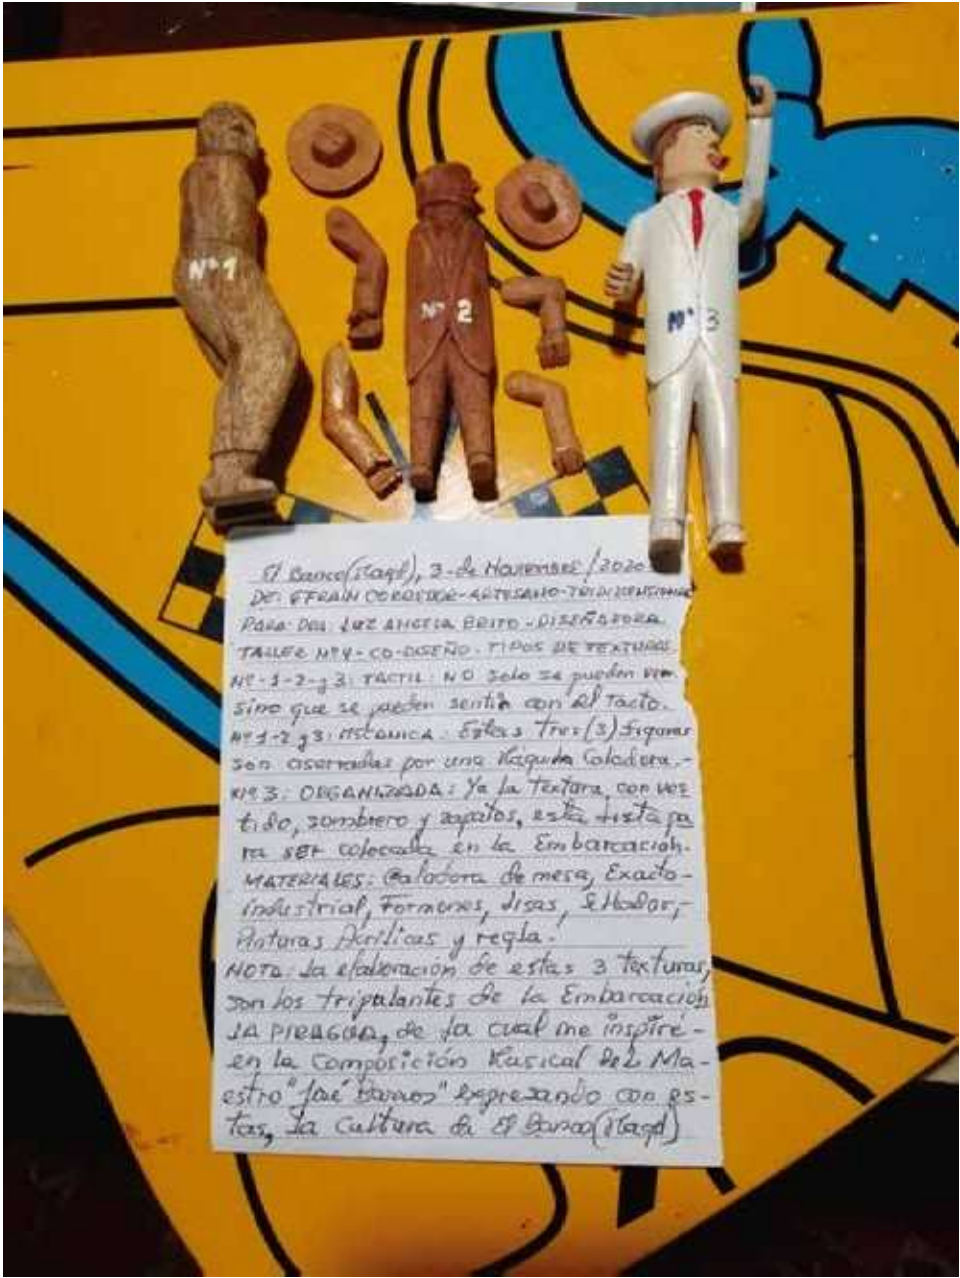 Nº 1
Nº 2
Nº 3
El Banco (Magd), 3-de Noviembre/2020
DE: EFRAIN CORREDOR-ARTESANO-TRIDIMENSIONAL
PARA: DRA: LUZ ANGELA BRITO-DISEÑADORA
TALLER Nº4-CO-DISEÑO-TIPOS DE TEXTURAS
Nº-1-2-y 3: TACTIL: NO solo se pueden ver
sino que se pueden sentir con el Tacto.
Nº 1-2 y 3: MECANICA: Estas Tres (3) figuras
son aserradas por una Máquina Caladora.-
Nº 3: ORGANIZADA: Ya la Textura, con ves
tido, sombrero y zapatos, esta lista pa
ra ser colocada en la Embarcación.
MATERIALES: Caladora de mesa, Exacto-
industrial, Formones, lijas, Sellador,-
Pinturas Acrílicas y regla.
NOTA: La elaboración de estas 3 texturas,
son los tripulantes de la Embarcación
LA PIRAGUA, de la cual me inspiré-
en la Composición Musical del Ma-
estro "José Barros" expresando con es-
tas, La Cultura de El Banco (Magd)